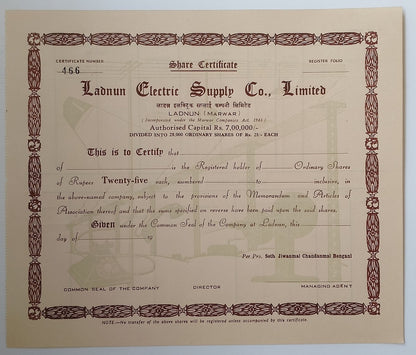 Share Certificate
CERTIFICATE NUMBER
REGISTER FOLIO
466
Ladnun Electric Supply Co., Limited
लाडनू इलेक्ट्रिक सप्लाई कम्पनी लिमिटेड
LADNUN (MARWAR)
( Incorporated under the Marwar Companies Act, 1943 )
Authorised Capital Rs. 7,00,000/-
DIVIDED INTO 28,000 ORDINARY SHARES OF Rs. 25/- EACH
This is to Certify that
of is the Registered holder of Ordinary Shares
of Rupees Twenty-five each, numbered to inclusive, in
the above-named company, subject to the provisions of the Memorandum and Articles of
Association thereof and that the sums specified on reverse have been paid upon the said shares.
Given under the Common Seal of the Company at Ladnun, this
day of 19
Per Pro. Seth Jiwanmal Chandanmal Bengani
COMMON SEAL OF THE COMPANY
DIRECTOR
MANAGING AGENT
NOTE.—No transfer of the above shares will be registered unless accompanied by this certificate.